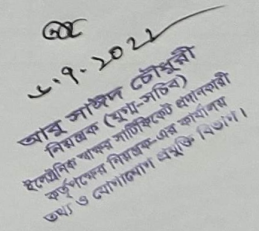 ৮.৭.২০২১
আবু সাঈদ চৌধুরী
নিয়ন্ত্রক (যুগ্ম-সচিব)
ইলেক্ট্রনিক স্বাক্ষর সার্টিফিকেট প্রদানকারী
কর্তৃপক্ষের নিয়ন্ত্রক-এর কার্যালয়
তথ্য ও যোগাযোগ প্রযুক্তি বিভাগ।